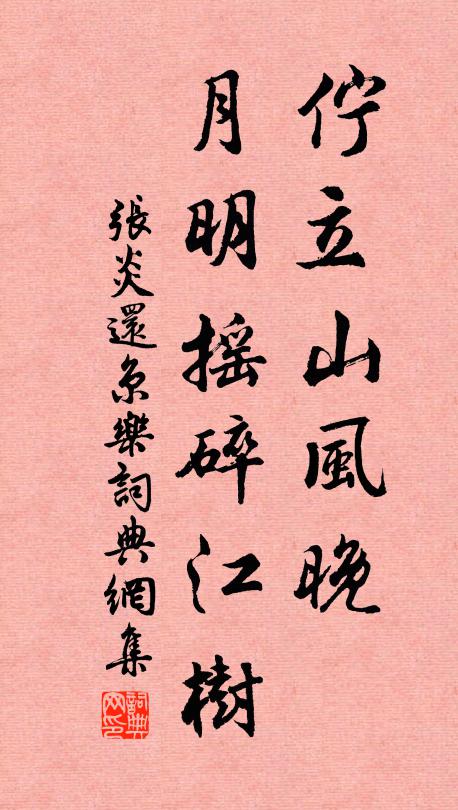 佇立山風晚
月明搖碎江樹
張炎還京樂詞典網集
詞典
网印